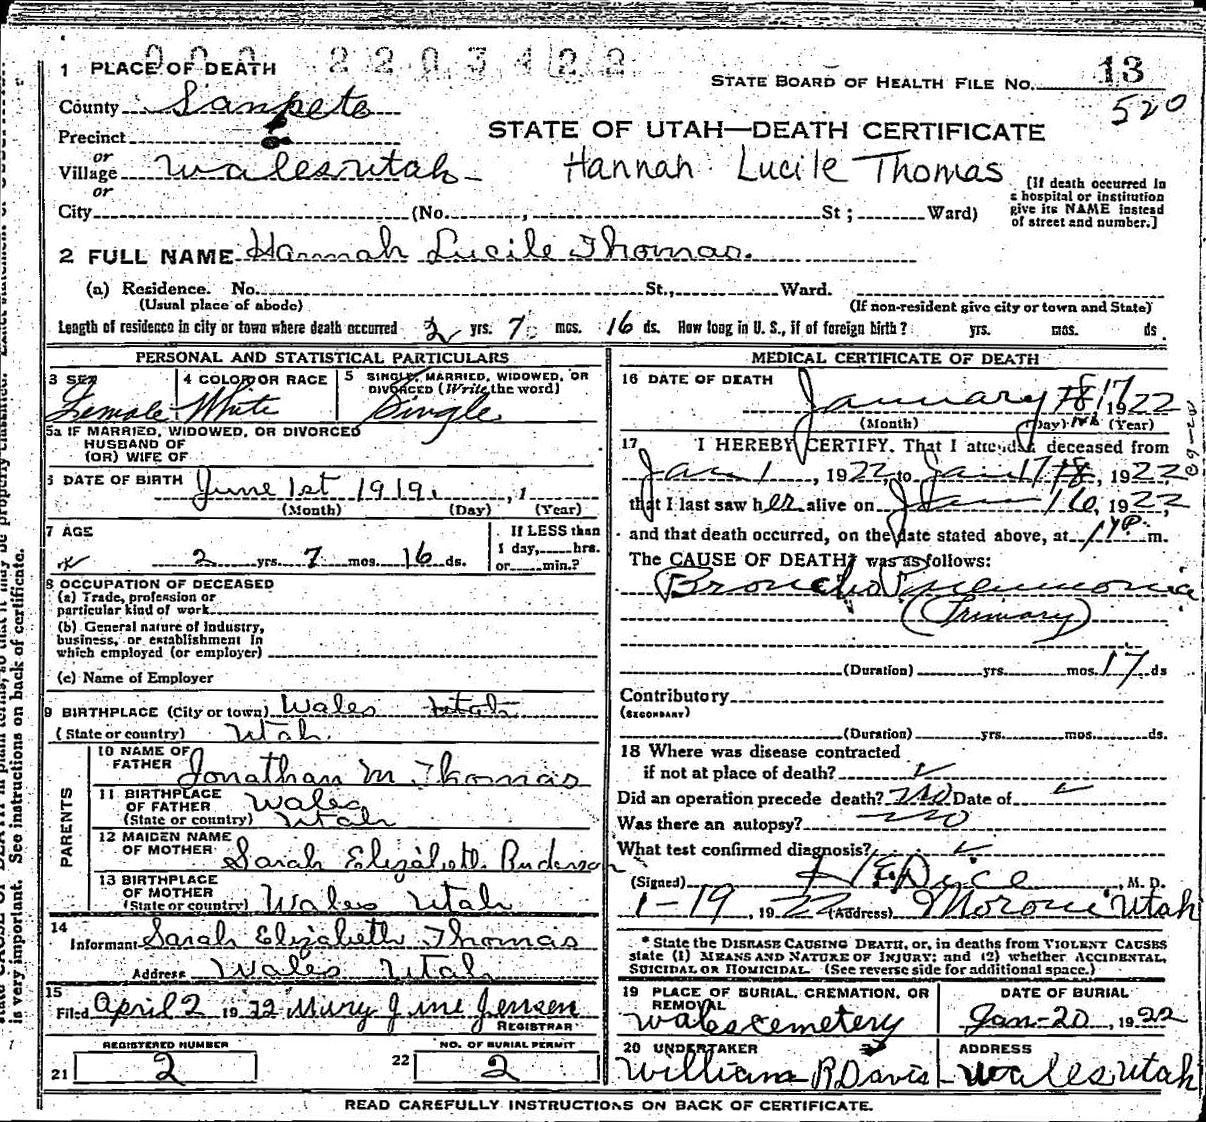 2203422
1 PLACE OF DEATH
STATE BOARD OF HEALTH FILE No. 13
County Sanpete
520
Precinct
STATE OF UTAH—DEATH CERTIFICATE
or
Village Wales Utah
Hannah Lucile Thomas
or
[If death occurred in a hospital or institution give its NAME instead of street and number.]
City (No. , St; Ward)
2 FULL NAME Hannah Lucile Thomas.
(a) Residence. No. St., Ward.
(Usual place of abode) (If non-resident give city or town and State)
Length of residence in city or town where death occurred 2 yrs. 7 mos. 16 ds. How long in U. S., if of foreign birth? yrs. mos. ds
PERSONAL AND STATISTICAL PARTICULARS
3 SEX Female
4 COLOR OR RACE White
5 SINGLE, MARRIED, WIDOWED, OR DIVORCED (Write the word) Single
5a IF MARRIED, WIDOWED, OR DIVORCED
HUSBAND OF
(OR) WIFE OF
6 DATE OF BIRTH June 1st 1919.
(Month) (Day) (Year)
7 AGE
2 yrs. 7 mos. 16 ds.
If LESS than
1 day, hrs.
or min.?
8 OCCUPATION OF DECEASED
(a) Trade, profession or
particular kind of work
(b) General nature of industry,
business, or establishment in
which employed (or employer)
(c) Name of Employer
9 BIRTHPLACE (City or town) Wales Utah
(State or country) Utah.
PARENTS
10 NAME OF FATHER Jonathan M Thomas
11 BIRTHPLACE OF FATHER Wales
(State or country) Utah
12 MAIDEN NAME OF MOTHER Sarah Elizabeth
13 BIRTHPLACE OF MOTHER
(State or country) Wales Utah
14
Informant Sarah Elizabeth Thomas
Address Wales Utah
15
Filed April 2 1922 Mary Jensen
REGISTRAR
REGISTERED NUMBER
21 2
NO. OF BURIAL PERMIT
22 2
MEDICAL CERTIFICATE OF DEATH
16 DATE OF DEATH
January 17, 1922
(Month) (Day) (Year)
17 I HEREBY CERTIFY, That I attended deceased from
Jan 1, 1922, to Jan 17, 1922,
that I last saw her alive on Jan 16, 1922,
and that death occurred, on the date stated above, at 1 P. m.
The CAUSE OF DEATH was as follows:
Broncho Pneumonia
(Primary)
(Duration) yrs. mos. 17 ds
Contributory
(SECONDARY)
(Duration) yrs. mos. ds.
18 Where was disease contracted
if not at place of death?
Did an operation precede death? no Date of
Was there an autopsy? no
What test confirmed diagnosis?
(Signed) , M. D.
1-19, 1922 (Address) Moroni Utah
* State the DISEASE CAUSING DEATH, or, in deaths from VIOLENT CAUSES
state (1) MEANS AND NATURE OF INJURY; and (2) whether ACCIDENTAL,
SUICIDAL OR HOMICIDAL. (See reverse side for additional space.)
19 PLACE OF BURIAL, CREMATION, OR REMOVAL
Wales cemetery
DATE OF BURIAL
Jan-20, 1922
20 UNDERTAKER
William R Davis
ADDRESS
Wales, Utah
READ CAREFULLY INSTRUCTIONS ON BACK OF CERTIFICATE.
is very important. See instructions on back of certificate.